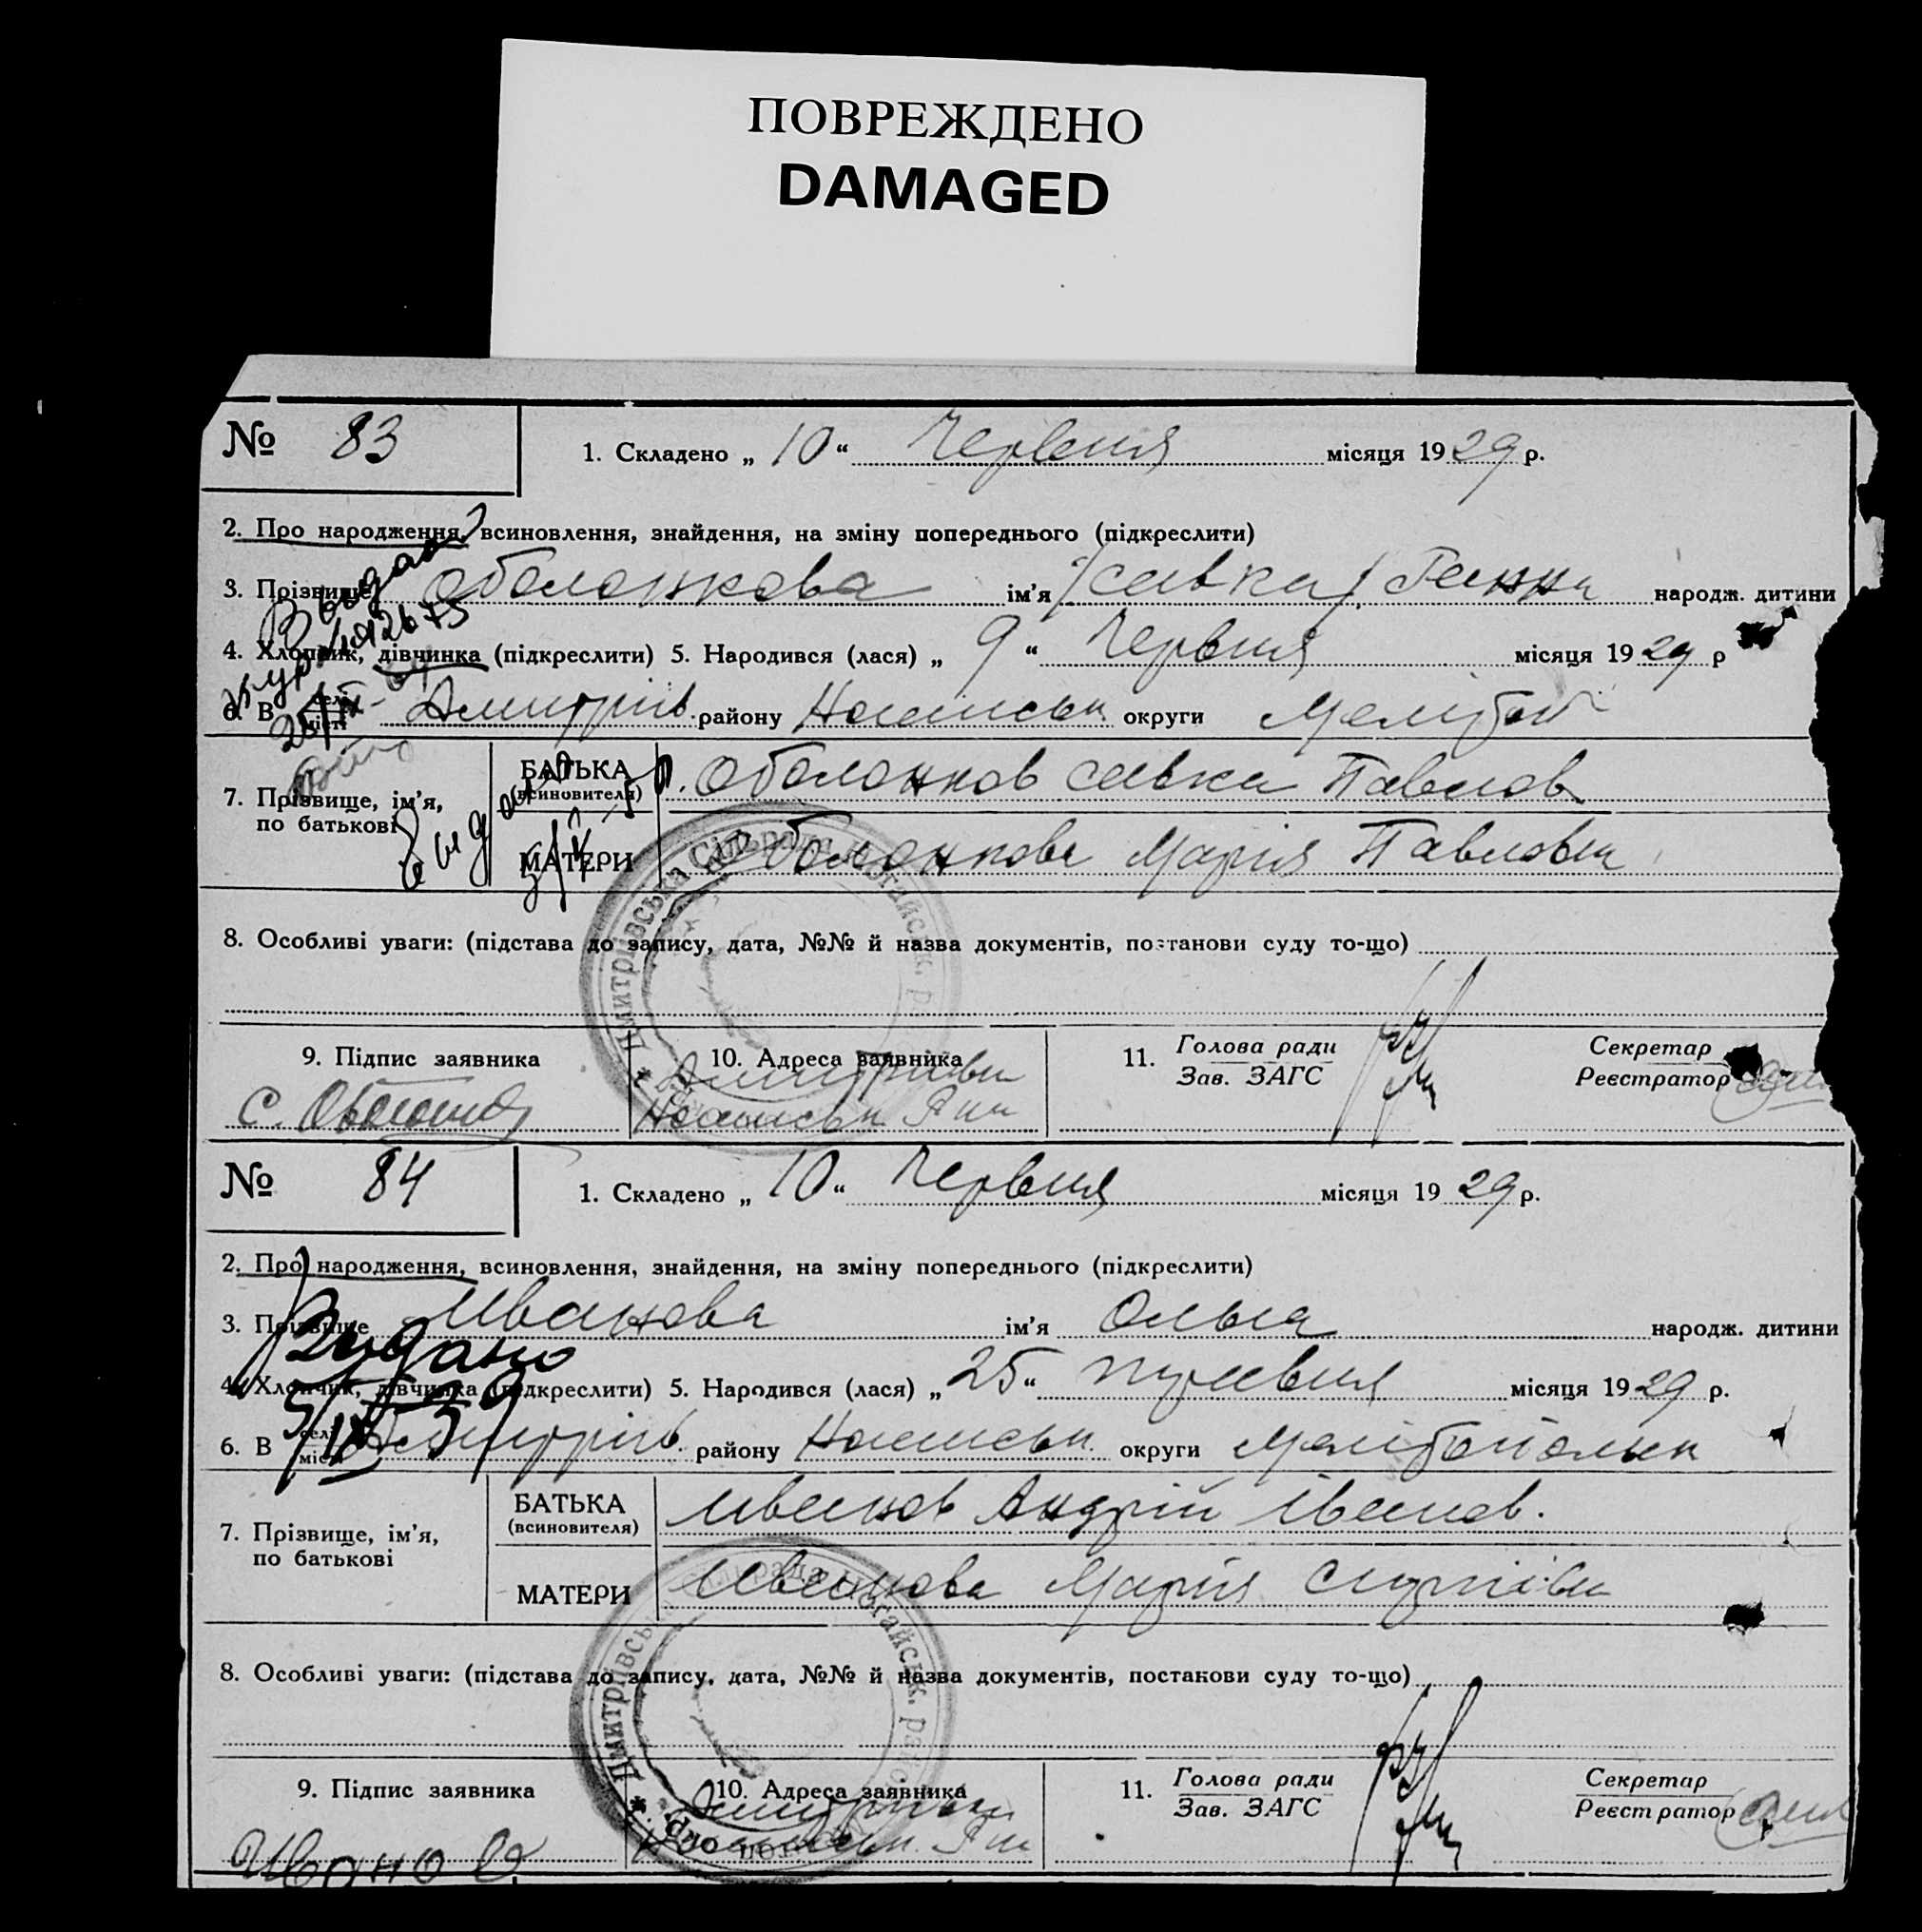 ПОВРЕЖДЕНО
DAMAGED
№ 83
1. Складено „ 10 “ Червня місяця 1929 р.
2. Про народження, всиновлення, знайдення, на зміну попереднього (підкреслити)
3. Прізвище Оболонкова ім'я /Савка/ Ганна народж. дитини
4. Хлопчик, дівчинка (підкреслити) 5. Народився (лася) „ 9 “ Червня місяця 1929 р
6. В селі місті Дмитрів. району Ногайськ округи Мелітоп
7. Прізвище, ім'я, по батькові
БАТЬКА (всиновителя) Оболонков Савка Павлов
МАТЕРИ Оболонкова Марія Павловна
8. Особливі уваги: (підстава до запису, дата, №№ й назва документів, постанови суду то-що)
9. Підпис заявника
10. Адреса заявника
11. Голова ради Зав. ЗАГС
Секретар Реєстратор
Дмитрівка
Ногайськ
Дмитрівська Сільрада Ногайськ. рай
№ 84
1. Складено „ 10 “ Червня місяця 1929 р.
2. Про народження, всиновлення, знайдення, на зміну попереднього (підкреслити)
3. Прізвище Иванова ім'я Ольга народж. дитини
Видано
4. Хлопчик, дівчинка (підкреслити) 5. Народився (лася) „ 25 “ травня місяця 1929 р.
6. В селі місті Дмитрів. району Ногайськ. округи Мелітопольськ
7. Прізвище, ім'я, по батькові
БАТЬКА (всиновителя) Иванов Андрій Іванов.
МАТЕРИ Иванова Марія
8. Особливі уваги: (підстава до запису, дата, №№ й назва документів, постанови суду то-що)
9. Підпис заявника
10. Адреса заявника
11. Голова ради Зав. ЗАГС
Секретар Реєстратор
Иванов